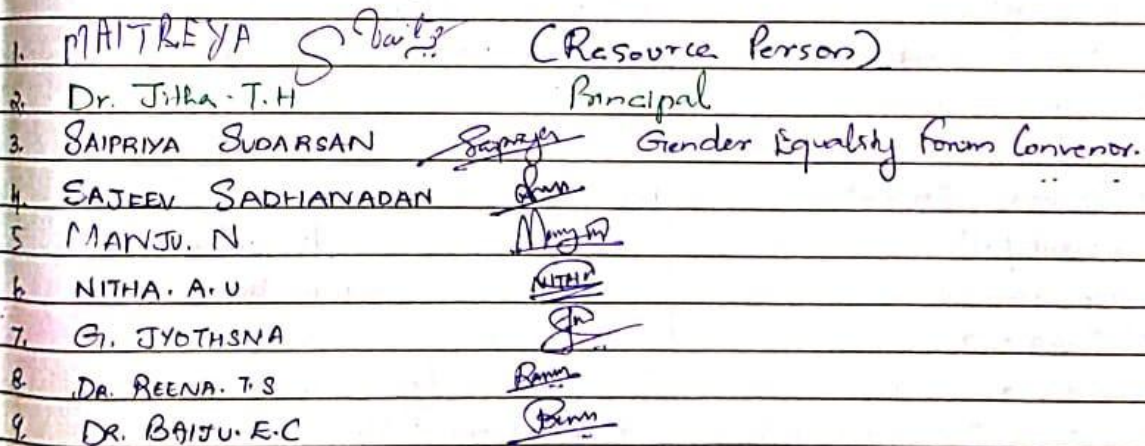 1. MAITREYA (Resource Person)
2. Dr. Jitha. T. H Principal
3. SAIPRIYA SUDARSAN Saipriya Gender Equality Forum Convenor.
4. SAJEEV SADHANADAN
5 MANJU. N
6. NITHA. A. U NITHA
7. G. JYOTHSNA
8. DR. REENA. T. S
9. DR. BAIJU. E. C